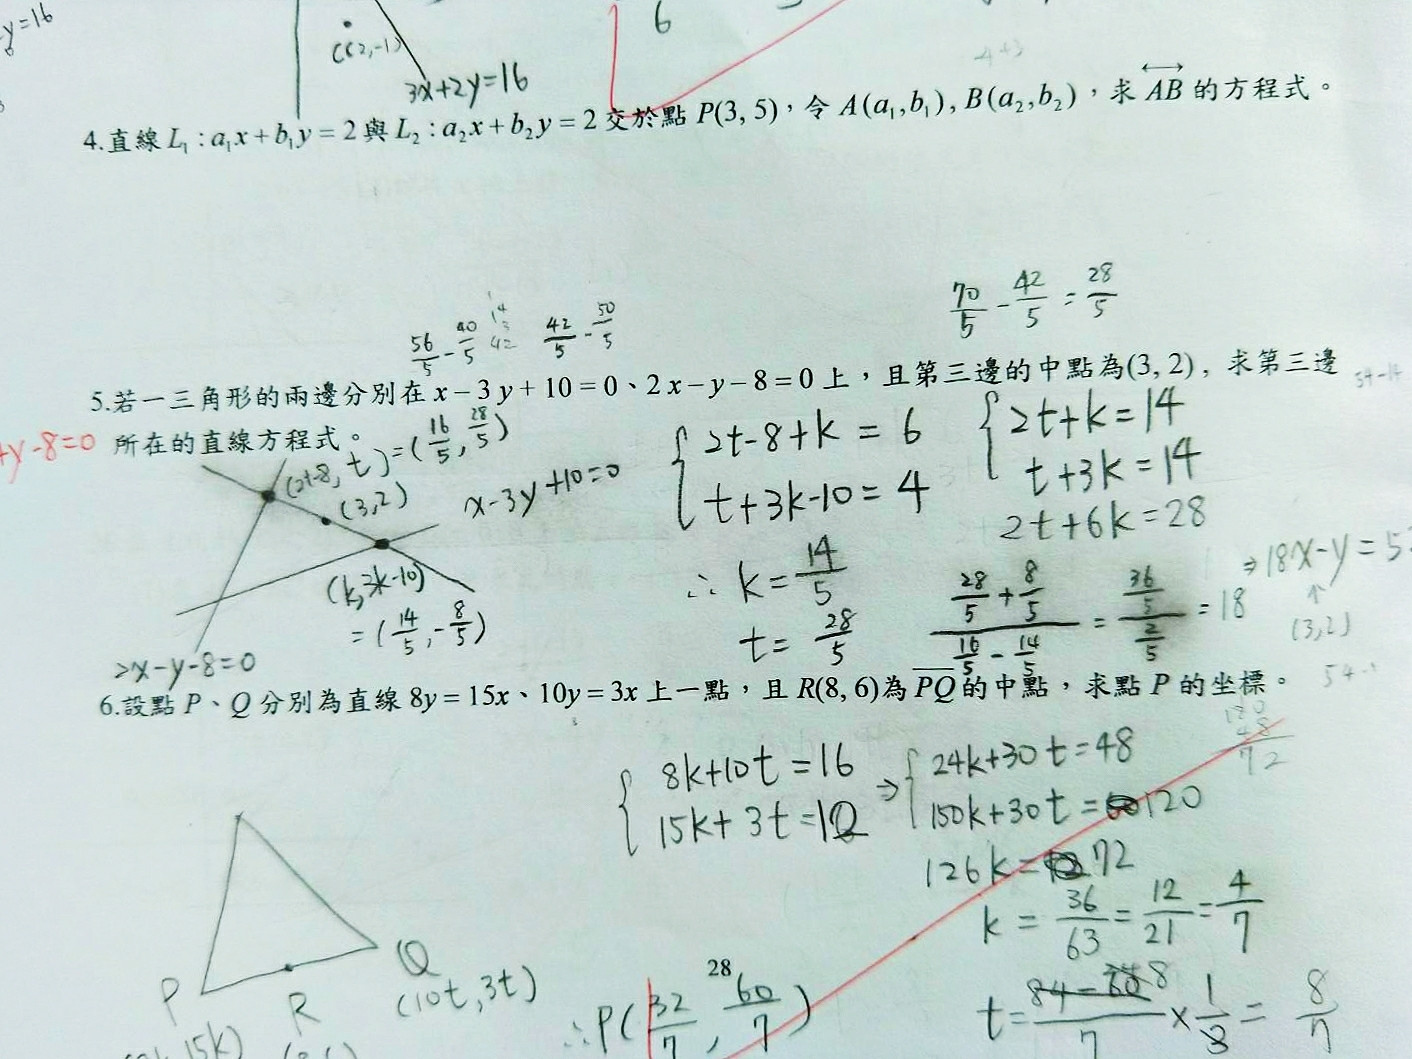 y=16
6
C(2,-1)
3x+2y=16
-4+3
4.直線 L₁ : a₁x + b₁y = 2 與 L₂ : a₂x + b₂y = 2 交於點 P(3, 5)，令 A(a₁,b₁), B(a₂,b₂)，求 AB 的方程式。
70/5 - 42/5 = 28/5
56/5 - 40/5
14
3
42
42/5 - 50/5
5.若一三角形的兩邊分別在 x – 3y + 10 = 0、2x – y – 8 = 0 上，且第三邊的中點為(3, 2)，求第三邊
54-14
所在的直線方程式。
+y-8=0
(2t-8, t)=(16/5, 28/5)
(3,2)
x-3y+10=0
(k, 2k-10)
=(14/5, -8/5)
2x-y-8=0
{ 2t-8+k = 6
t+3k-10 = 4
{ 2t+k=14
t+3k=14
2t+6k=28
∴ k=14/5
t= 28/5
(28/5+8/5)/(16/5-14/5) = (36/5)/(2/5) = 18
⇒18x-y=5
↑
(3,2)
54-
6.設點 P、Q 分別為直線 8y = 15x、10y = 3x 上一點，且 R(8, 6)為 PQ 的中點，求點 P 的坐標。
120
48
72
{ 8k+10t=16
15k+3t=12
⇒{ 24k+30t=48
150k+30t=120
126k=72
k = 36/63 = 12/21 = 4/7
P
R
Q
(10t,3t)
15k)
∴P(32/7, 60/7)
28
8/7